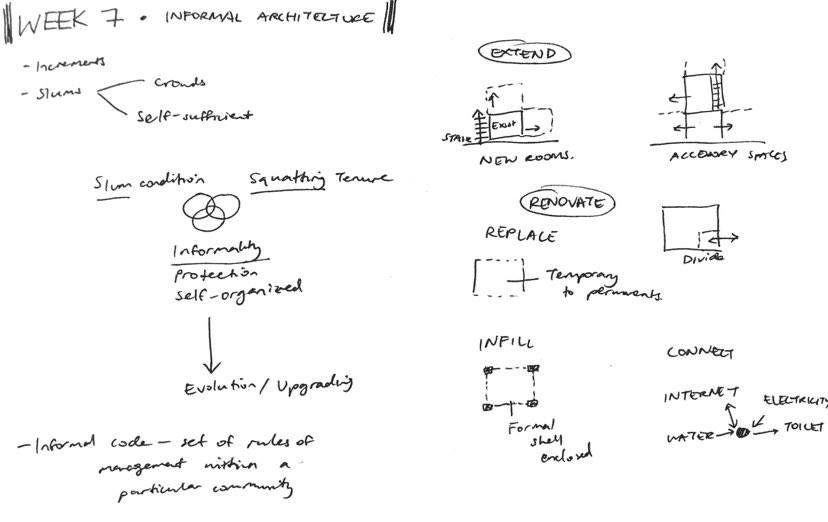 WEEK 7 • INFORMAL ARCHITECTURE
- Increments
- Slums
Crowds
Self-sufficient
Slum condition
Squatting Tenure
Informality
Protection
Self-organized
Evolution / Upgrading
- Informal code - set of rules of
management within a
particular community
EXTEND
STAIR
Exist
NEW ROOMS.
ACCESSORY SPACES
RENOVATE
REPLACE
Temporary
to permanents
Divide
INFILL
Formal
shell
enclosed
CONNECT
INTERNET
ELECTRICITY
WATER
TOILET